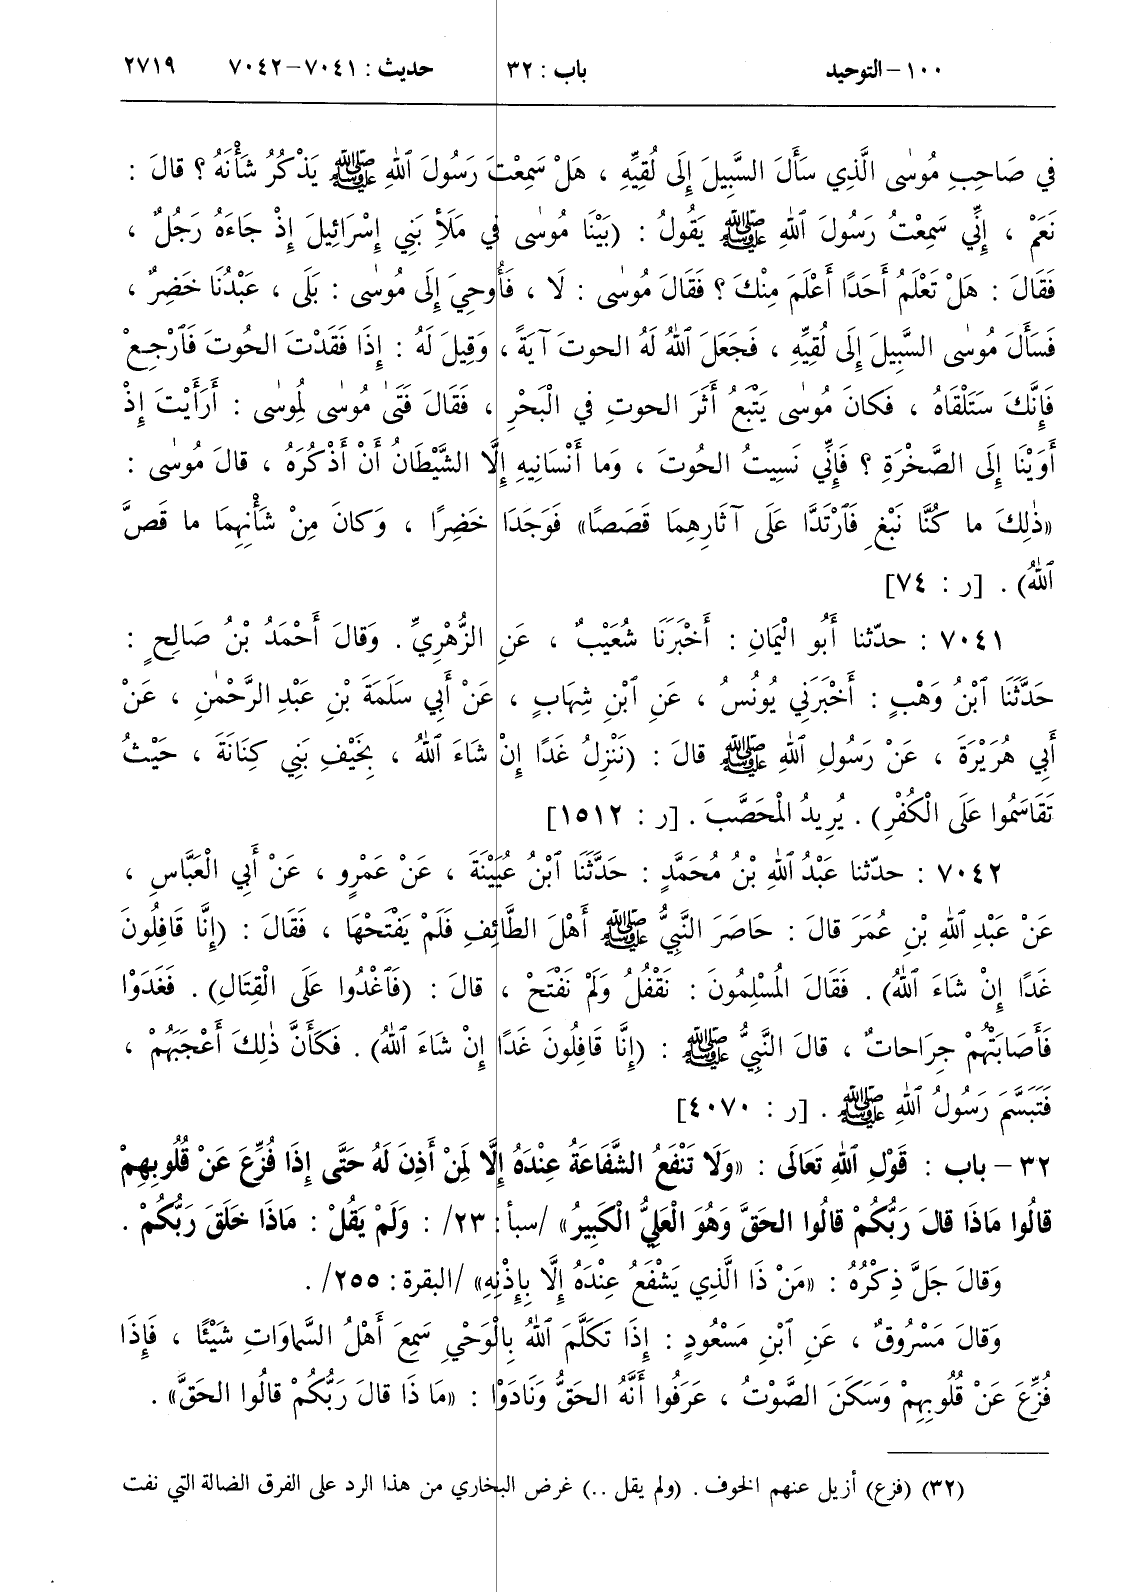 ١٠٠- التوحيد باب : ٣٢ حديث : ٧٠٤١-٧٠٤٢ ٢٧١٩
في صَاحِبِ مُوسٰى الَّذِي سَأَلَ السَّبِيلَ إِلَى لُقِيِّهِ ، هَلْ سَمِعْتَ رَسُولَ ٱللهِ ﷺ يَذْكُرُ شَأْنَهُ ؟ قالَ :
نَعَمْ ، إِنِّي سَمِعْتُ رَسُولَ ٱللهِ ﷺ يَقُولُ : (بَيْنَا مُوسٰى في مَلَأِ بَنِي إِسْرَائِيلَ إِذْ جَاءَهُ رَجُلٌ ،
فَقَالَ : هَلْ تَعْلَمُ أَحَدًا أَعْلَمَ مِنْكَ ؟ فَقَالَ مُوسٰى : لَا ، فَأُوحِيَ إِلَى مُوسٰى : بَلَى ، عَبْدُنَا خَضِرٌ ،
فَسَأَلَ مُوسٰى السَّبِيلَ إِلَى لُقِيِّهِ ، فَجَعَلَ ٱللهُ لَهُ الحوتَ آيَةً ، وَقِيلَ لَهُ : إِذَا فَقَدْتَ الحُوتَ فَٱرْجِعْ
فَإِنَّكَ سَتَلْقَاهُ ، فَكانَ مُوسٰى يَتْبَعُ أَثَرَ الحوتِ في الْبَحْرِ ، فَقَالَ فَتَى مُوسٰى لِمُوسٰى : أَرَأَيْتَ إِذْ
أَوَيْنَا إِلَى الصَّخْرَةِ ؟ فَإِنِّي نَسِيتُ الحُوتَ ، وَما أَنْسَانِيهِ إِلَّا الشَّيْطَانُ أَنْ أَذْكُرَهُ ، قالَ مُوسٰى :
«ذٰلِكَ ما كُنَّا نَبْغِ فَٱرْتَدَّا عَلَى آثَارِهِمَا قَصَصًا» فَوَجَدَا خَضِرًا ، وَكانَ مِنْ شَأْنِهِمَا ما قَصَّ
ٱللهُ) . [ر : ٧٤]
٧٠٤١ : حدّثنا أَبُو الْيَمَانِ : أَخْبَرَنَا شُعَيْبٌ ، عَنِ الزُّهْرِيِّ . وَقالَ أَحْمَدُ بْنُ صَالِحٍ :
حَدَّثَنَا ٱبْنُ وَهْبٍ : أَخْبَرَنِي يُونُسُ ، عَنِ ٱبْنِ شِهَابٍ ، عَنْ أَبِي سَلَمَةَ بْنِ عَبْدِ الرَّحْمٰنِ ، عَنْ
أَبِي هُرَيْرَةَ ، عَنْ رَسُولِ ٱللهِ ﷺ قالَ : (نَنْزِلُ غَدًا إِنْ شَاءَ ٱللهُ ، بِخَيْفِ بَنِي كِنَانَةَ ، حَيْثُ
تَقَاسَمُوا عَلَى الْكُفْرِ) . يُرِيدُ الْمُحَصَّبَ . [ر : ١٥١٢]
٧٠٤٢ : حدّثنا عَبْدُ ٱللهِ بْنُ مُحَمَّدٍ : حَدَّثَنَا ٱبْنُ عُيَيْنَةَ ، عَنْ عَمْرٍو ، عَنْ أَبِي الْعَبَّاسِ ،
عَنْ عَبْدِ ٱللهِ بْنِ عُمَرَ قالَ : حَاصَرَ النَّبِيُّ ﷺ أَهْلَ الطَّائِفِ فَلَمْ يَفْتَحْهَا ، فَقَالَ : (إِنَّا قَافِلُونَ
غَدًا إِنْ شَاءَ ٱللهُ) . فَقَالَ الْمُسْلِمُونَ : نَقْفُلُ وَلَمْ نَفْتَحْ ، قالَ : (فَٱغْدُوا عَلَى الْقِتَالِ) . فَغَدَوْا
فَأَصَابَتْهُمْ جِرَاحاتٌ ، قالَ النَّبِيُّ ﷺ : (إِنَّا قَافِلُونَ غَدًا إِنْ شَاءَ ٱللهُ) . فَكَأَنَّ ذٰلِكَ أَعْجَبَهُمْ ،
فَتَبَسَّمَ رَسُولُ ٱللهِ ﷺ . [ر : ٤٠٧٠]
٣٢ - باب : قَوْلِ ٱللهِ تَعَالَى : «وَلَا تَنْفَعُ الشَّفَاعَةُ عِنْدَهُ إِلَّا لِمَنْ أَذِنَ لَهُ حَتَّى إِذَا فُزِّعَ عَنْ قُلُوبِهِمْ
قالُوا مَاذَا قالَ رَبُّكُمْ قالُوا الحَقَّ وَهُوَ الْعَلِيُّ الْكَبِيرُ» /سبأ : ٢٣/ : وَلَمْ يَقُلْ : مَاذَا خَلَقَ رَبُّكُمْ .
وَقالَ جَلَّ ذِكْرُهُ : «مَنْ ذَا الَّذِي يَشْفَعُ عِنْدَهُ إِلَّا بِإِذْنِهِ» /البقرة : ٢٥٥/ .
وَقالَ مَسْرُوقٌ ، عَنِ ٱبْنِ مَسْعُودٍ : إِذَا تَكَلَّمَ ٱللهُ بِالْوَحْيِ سَمِعَ أَهْلُ السَّماوَاتِ شَيْئًا ، فَإِذَا
فُزِّعَ عَنْ قُلُوبِهِمْ وَسَكَنَ الصَّوْتُ ، عَرَفُوا أَنَّهُ الحَقُّ وَنَادَوْا : «مَا ذَا قالَ رَبُّكُمْ قالُوا الحَقَّ» .
(٣٢) (فزع) أزيل عنهم الخوف . (ولم يقل ..) غرض البخاري من هذا الرد على الفرق الضالة التي نفت